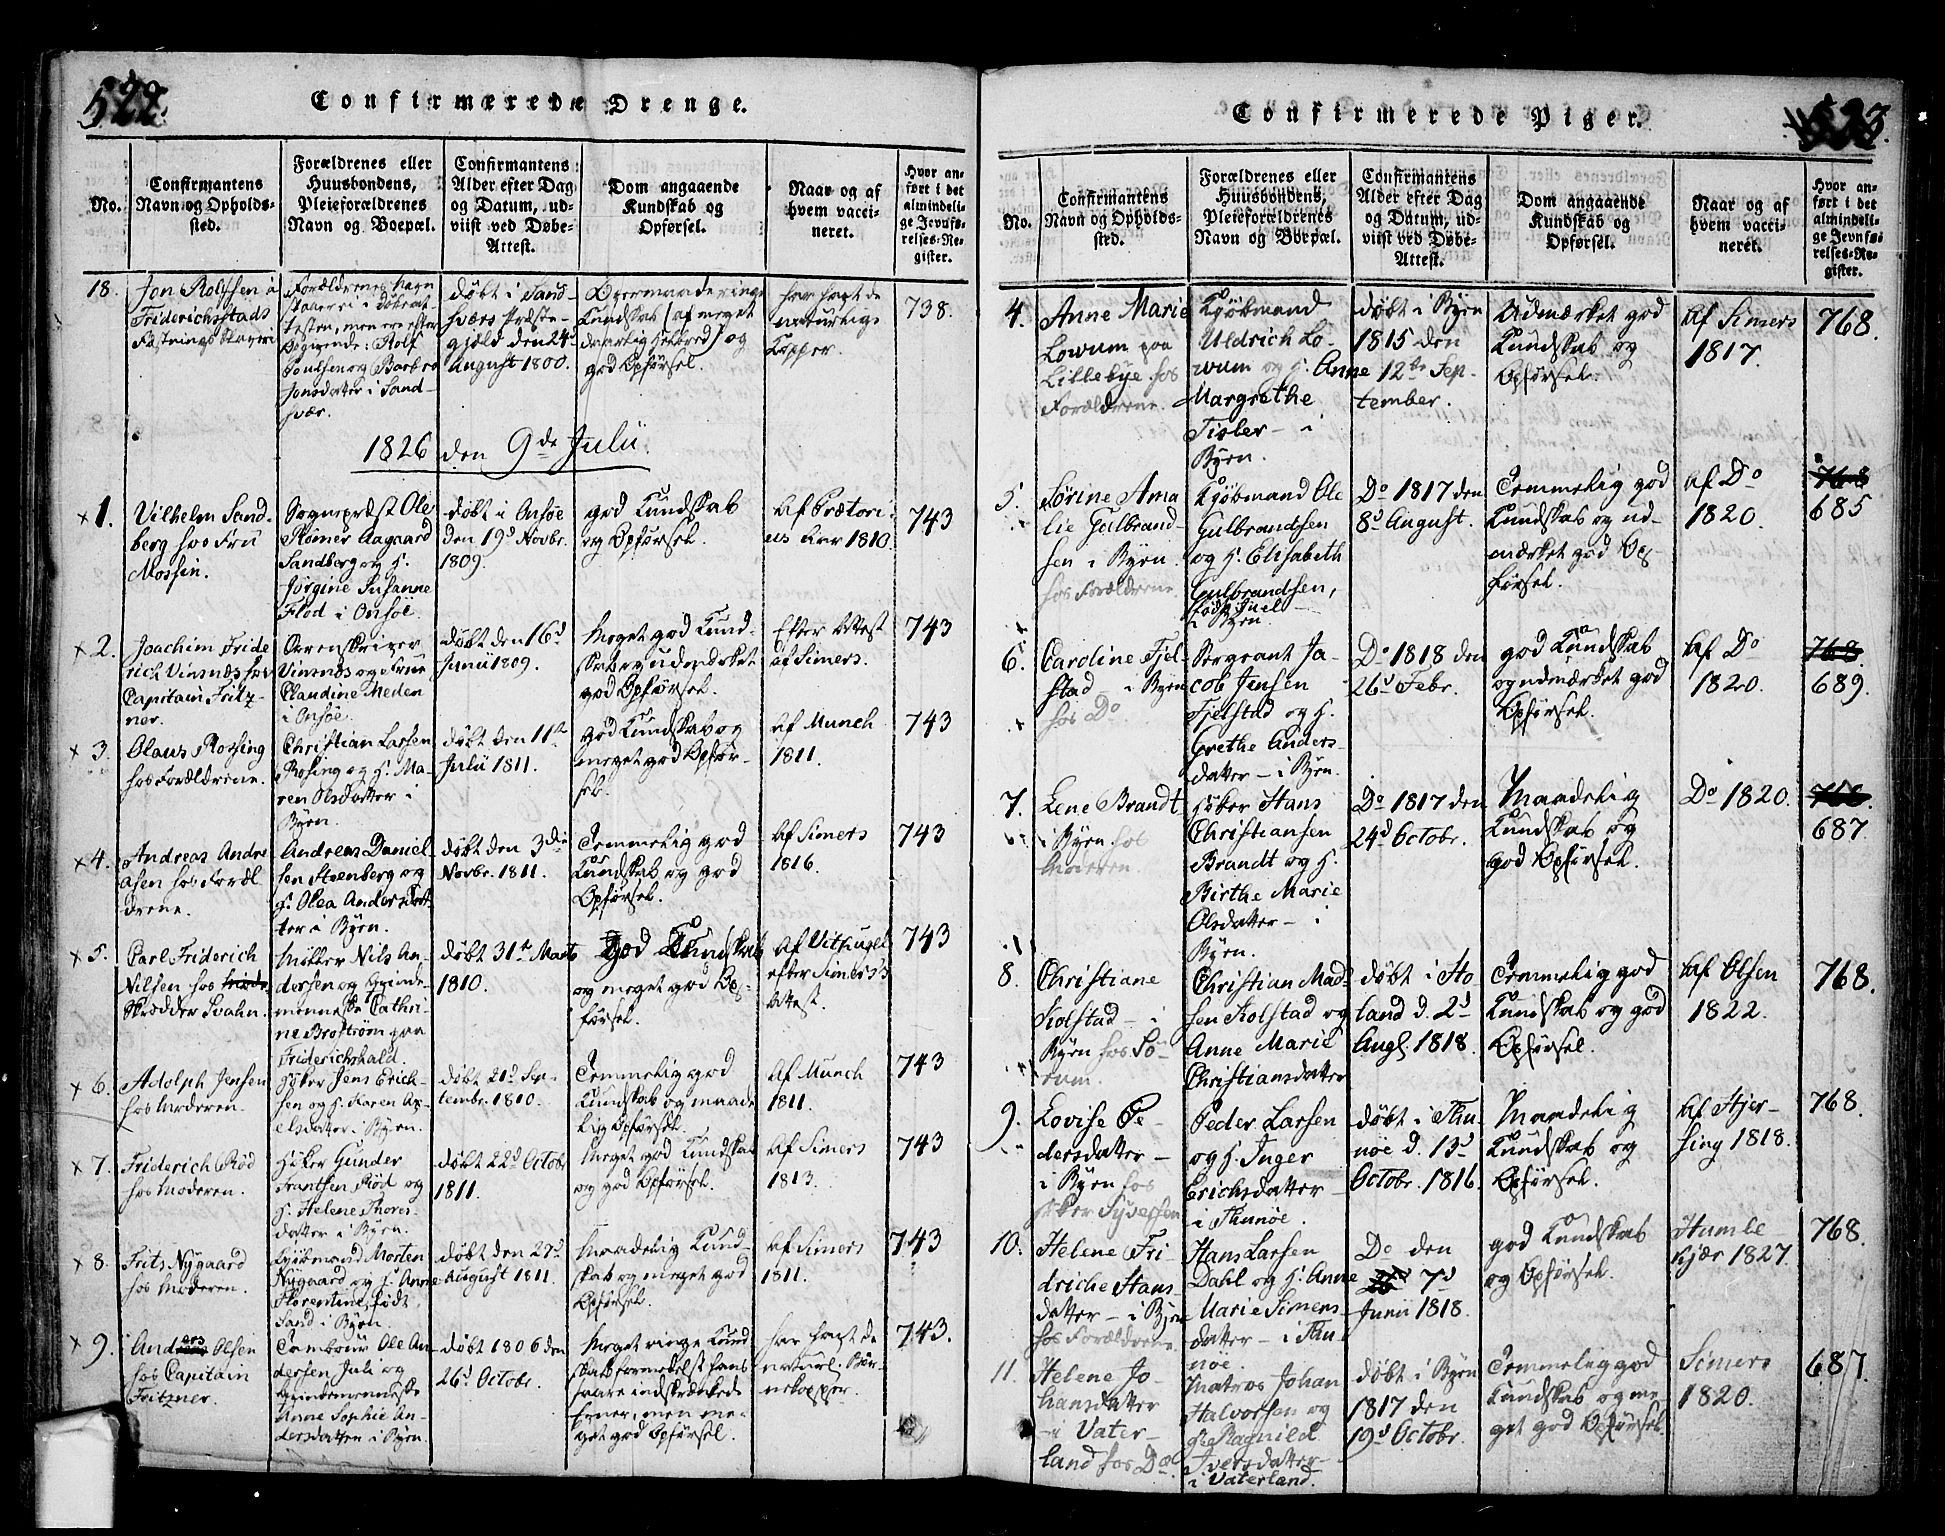 522.
Confirmerede Drenge.
No.
Confirmantens
Navn og Opholds-
sted.
Forældrenes eller
Huusbondens,
Pleieforældrenes
Navn og Boepæl.
Confirmantens
Alder efter Dag
og Datum, ud-
viist ved Døbe-
Attest.
Dom angaaende
Kundskab og
Opførsel.
Naar og af
hvem vacci-
neret.
Hvor an-
ført i det
almindeli-
ge Jevnfø-
relses-Re-
gister.
18.
Jon Rolfsen i
Friderichsstads
Fæstnings Slaveri
Forældrenes Navn
staaer ei i Døbeat-
testen, men ere efter
Opgivende: Rolf
Poulsen og Barbro
Jonsdatter i Sand-
svær.
døbt i Sand-
sværs Præste-
gjeld den 24d
August 1800.
Overmaade ringe
Kundskab (af meget
daarlig Hoved) og
god Opførsel.
har havt de
naturlige
Kopper.
738.
1826 den 9de Julii
x 1.
Vilhelm Sand-
berg hos Fru
Mossin.
Sognepræst Ole
Rømer Aagaard
Sandberg og H.
Jørgine Susanne
Flod i Onsøe
døbt i Onsøe
den 19d Novbr.
1809.
god Kundskab
og Opførsel.
af Prætori-
us 1810.
743
x 2.
Joachim Fride
rich Vinsnæs hos
Capitain Fritz-
ner.
Vinsnæs og Frue
Claudine Neden
i Onsøe.
døbt den 16d
Junii 1809.
Meget god Kund-
skab og udmærket
god Opførsel.
Efter Attest
af Simers.
743
x 3.
Olaus Rossing
hos Forældrene.
Christian Larsen
Rosing og H. Ma-
ren Olsdatter i
Byen.
døbt den 11te
Julii 1811.
god Kundskab og
meget god Opfør-
sel.
af Munch
1811.
743
x 4.
Andreas Andre
asen hos Foræl
drene.
Andreas Daniel
sen Steenberg og
H. Olea Andersdat-
ter i Byen.
døbt den 3die
Novbr. 1811.
Temmelig god
Kundskab og god
Opførsel.
af Simers
1816.
743
x 5.
Carl Friderich
Nilsen hos
Skrædder Svahn.
Møller Nils An-
dersen og Qvinde-
menneske Cathri-
ne Brostrøm paa
Friderichshald.
døbt 31te Marts
1810.
god Kundskab
og meget god Op-
førsel.
af Vithugel
efter Simers's
Attest.
743
x 6.
Adolph Jensen
hos Moderen.
Jens Erich-
sen og H. Karen Ax-
elsdatter i Byen.
døbt 21d Sep-
tembr. 1810.
Temmelig god
Kundskab og maade
lig Opførsel.
af Munch
1811.
743
x 7.
Friderich Rød
hos Moderen.
Gunder
Frantsen Rød og
H. Helene Thores-
datter i Byen.
døbt 22d Octobr
1811.
Meget god Kundskab
og god Opførsel.
af Simers
1813.
743
x 8.
Frits Nygaard
hos Moderen.
Kjøbmand Morten
Nygaard og H. Anne
Florentine, født
Sand i Byen.
døbt den 27d
August 1811.
Maadelig Kund-
skab og meget god
Opførsel.
af Simers
1811.
743
x 9.
Anders Olsen
hos Capitain
Fritzner.
Tambour Ole An-
dersen Juli og
Qvindemenneske
Anne Sophie An-
dersdatter i Byen.
døbt 1806 den
26d Octobr.
Meget ringe Kund
skab formedelst hans
saare indskrænkede
Evner, men me-
get god Opførsel.
har havt de
naturl. Bør-
nekopper.
743.
523.
Confirmerede Piger.
No.
Confirmantens
Navn og Opholds-
sted.
Forældrenes eller
Huusbondens,
Pleieforældrenes
Navn og Boepæl.
Confirmantens
Alder efter Dag
og Datum, ud-
viist ved Døbe-
Attest.
Dom angaaende
Kundskab og
Opførsel.
Naar og af
hvem vacci-
neret.
Hvor an-
ført i det
almindeli-
ge Jevnfø-
relses-Re-
gister.
4.
Anne Marie
Lowum paa
Lillebye hos
Forældrene.
Kjøbmand
Uldrich Lo-
wum og H. Anne
Margrethe
Tisler - i
Byen.
døbt i Byen
1815 den
12te Sep-
tember.
Udmærket god
Kundskab og
Opførsel.
af Simers
1817.
768.
5.
Sørine Ama
lie Gulbrand-
sen i Byen
hos Forældrene
Kjøbmand Ole
Gulbrandsen
og H. Elisabeth
Gulbrandsen,
født Juel
i Byen.
Do 1817 den
8d August.
Temmelig god
Kundskab og ud-
mærket god Op
førsel.
af Do
1820.
768
685
6.
Caroline Fjel-
stad i Byen
hos Do
Sergeant Ja-
cob Jensen
Fjelstad og H.
Grethe Anders-
datter - i Byen.
Do 1818 den
26d Febr.
god Kundskab
og udmærket god
Opførsel.
af Do
1820.
768.
689.
7.
Lene Brandt
i Byen hos
Moderen.
Hans
Christiansen
Brandt og H.
Birthe Marie
Olsdatter - i
Byen.
Do 1817 den
24d Octobr.
Maadelig
Kundskab og
god Opførsel.
Do 1820.
768.
687.
8.
Christiane
Kolstad - i
Byen hos Lo-
vum.
Christian Mad-
sen Kolstad og
Anne Marie
Christiansdatter
døbt i Ho-
land d. 2d
Augl. 1818.
Temmelig god
Kundskab og god
Opførsel.
af Olsen
1822.
768.
9.
Lovise Pe-
dersdatter -
i Byen hos
Syversen
Peder Larsen
og H. Inger
Erichsdatter -
i Thunøe.
døbt i Thu-
nøe d. 13d
Octobr. 1816.
Maadelig
Kundskab og
Opførsel.
af Hjer-
sing 1818.
768.
10.
Helene Fri-
driche Hans-
datter - i Byen
hos Forældrene
Hans Larsen
Dahl og H. Anne
Marie Simens-
datter - i Thu-
nøe.
Do den
7d
Junii 1818.
god Kundskab
og Opførsel.
Humle
kjær 1827.
768.
11.
Helene Jo-
hansdatter
- i Vater-
land hos Do
Matros Johan
Halvorsen og
H. Ragnild
Iversdatter -
i Vaterland.
døbt i Byen
1817 den
19d Octobr.
Temmelig god
Kundskab og me
get god Opførsel.
Simers
1820.
687.